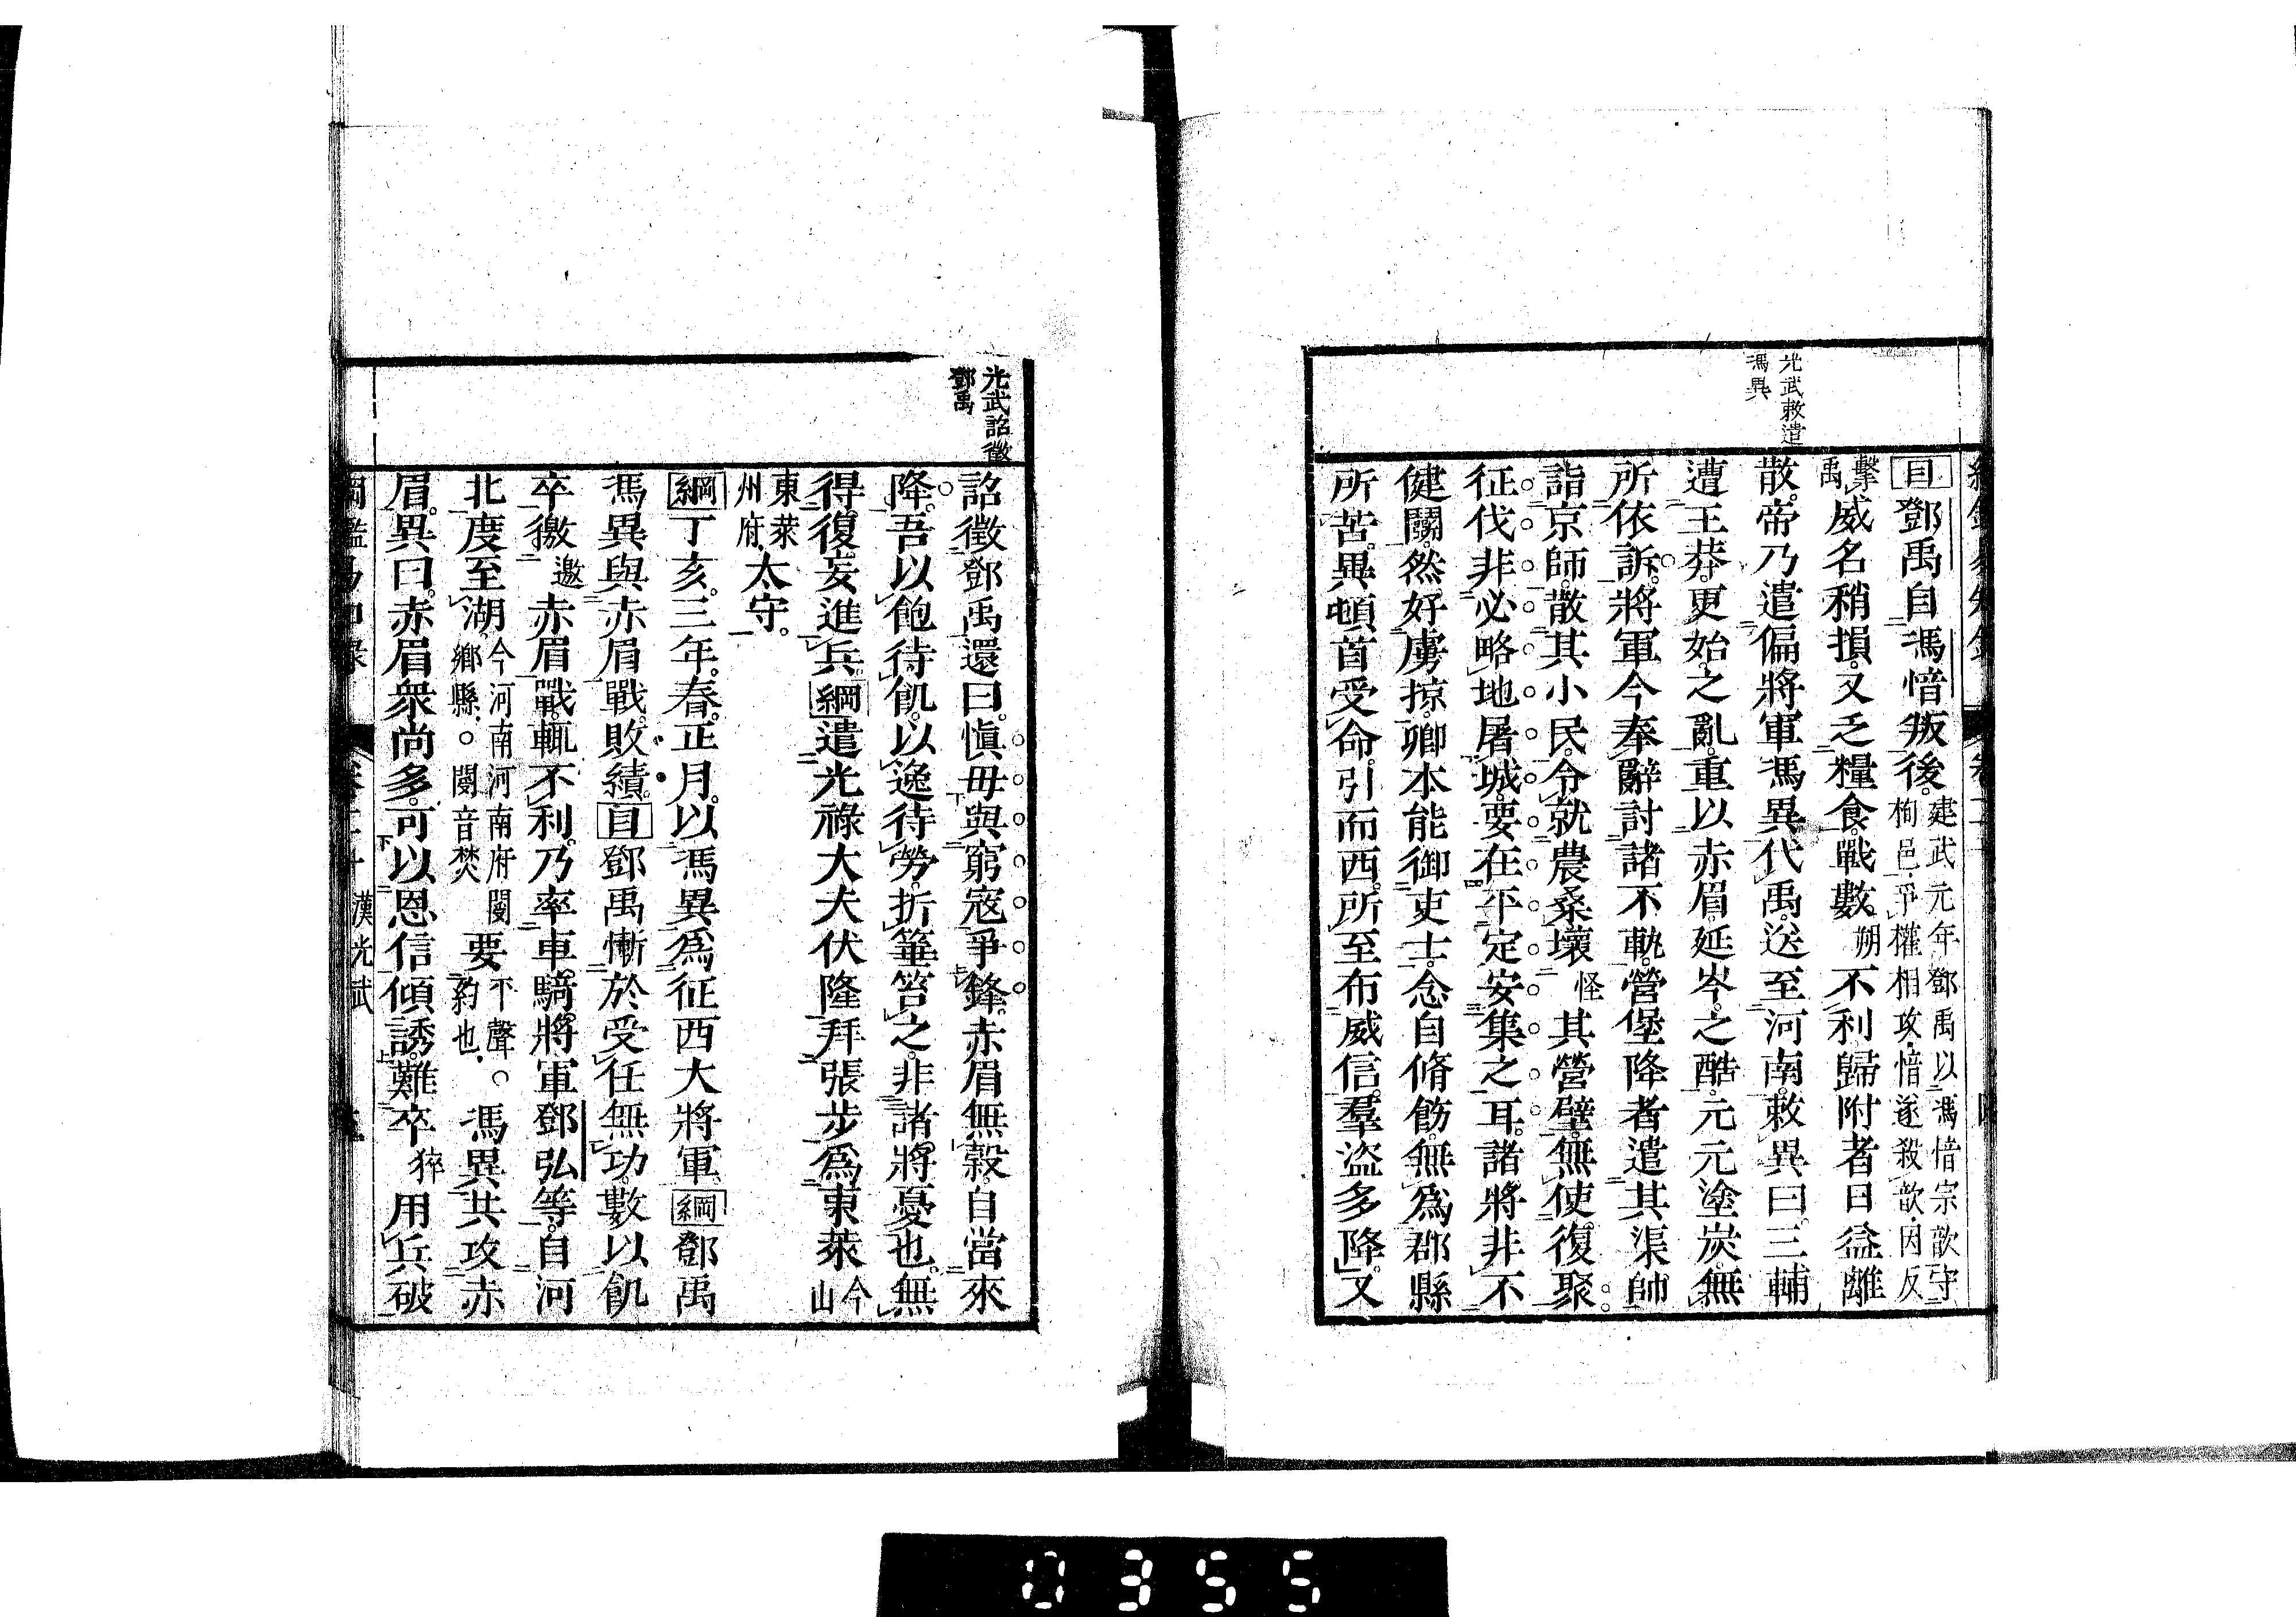 光武敕遣
馮異
目鄧禹自馮愔叛後建武元年鄧禹以馮愔宗歆守栒邑爭權相攻愔遂殺歆因反
擊禹威名稍損又乏糧食戰數朔不利歸附者日益離
散帝乃遣偏將軍馮異代禹送至河南敕異曰三輔
遭王莽更始之亂重以赤眉延岑之酷元元塗炭無
所依訴將軍今奉辭討諸不軌營堡降者遣其渠帥
詣京師散其小民令就農桑壞怪其營壁無使復聚
征伐非必略地屠城要在平定安集之耳諸將非不
健鬭然好虜掠卿本能御吏士念自脩飭無爲郡縣
所苦異頓首受命引而西所至布威信羣盜多降又
光武詔徵
鄧禹
詔徵鄧禹還曰愼毋與窮寇爭鋒赤眉無糓自當來
降吾以飽待飢以逸待勞折箠笞之非諸將憂也無
得復妄進兵綱遣光祿大夫伏隆拜張步爲東萊今山
東萊州府太守
綱丁亥三年春正月以馮異爲征西大將軍綱鄧禹
馮異與赤眉戰敗績目鄧禹慚於受任無功數以飢
卒徼邀赤眉戰輒不利乃率車騎將軍鄧弘等自河
北度至湖今河南河南府閿鄉縣。閿音焚要平聲約也。馮異共攻赤
眉異曰赤眉衆尚多可以恩信傾誘難卒猝用兵破
漢光武
0355